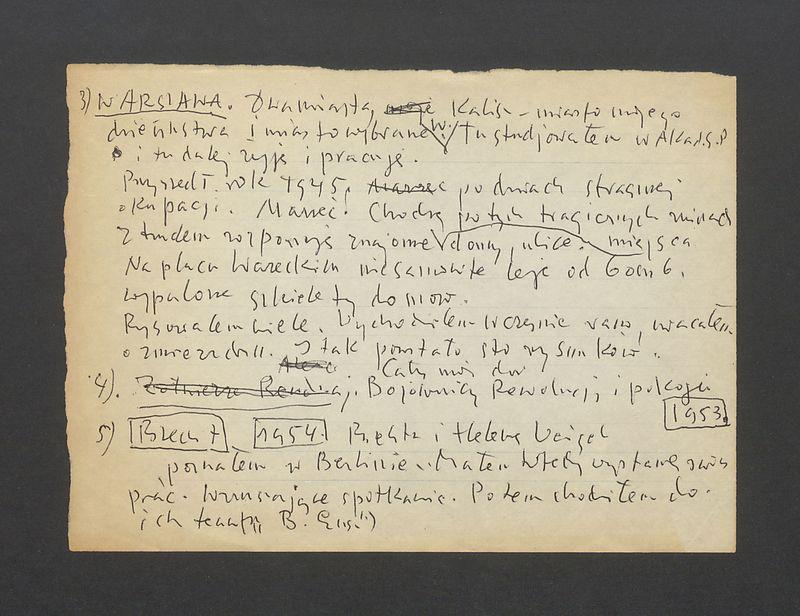 3) WARSZAWA. Dwa miasta, moje Kalisz – miasto mojego
dzieciństwa i miasto wybrane W. Tu studjowałem w Akad.S.P
i tu dalej żyję i pracuję.
Przyszedł rok 1945, Marzec po dniach strasznej
okupacji. Marzec. Chodzę po tych tragicznych ruinach
z trudem rozpoznaję znajome domy, ulice, miejsca
Na placu Wareckim niesamowite leje od bomb,
wypalone szkielety domów.
Rysowałem wiele. Wychodziłem wcześnie rano, wracałem
o zmierzchu. I tak powstało sto rysunków.
Cały mój
4). Żołnierze Bojownicy Rewolucji i pokoju
1953.
5) Brecht 1954. Brechta i Helenę Weigel
poznałem w Berlinie. Miałem wtedy wystawę swoich
prac. Wzruszające spotkanie. Potem chodziłem do
ich teatru B. Ens.")